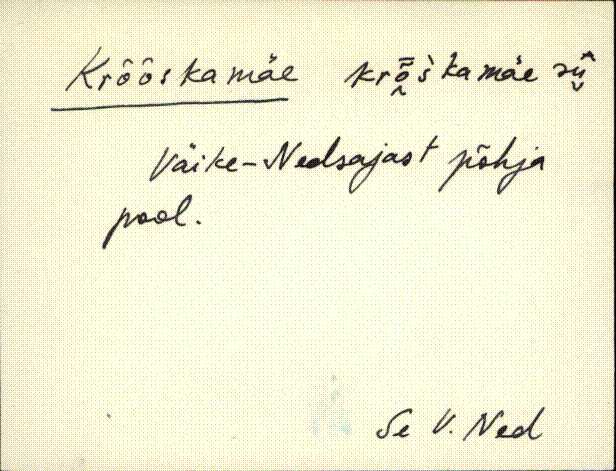 Krõõskamäe krȭ̭̄š̀kamäe sṷ̄̂
Väike-Nedsajast põhja
pool.
Se V. Ned